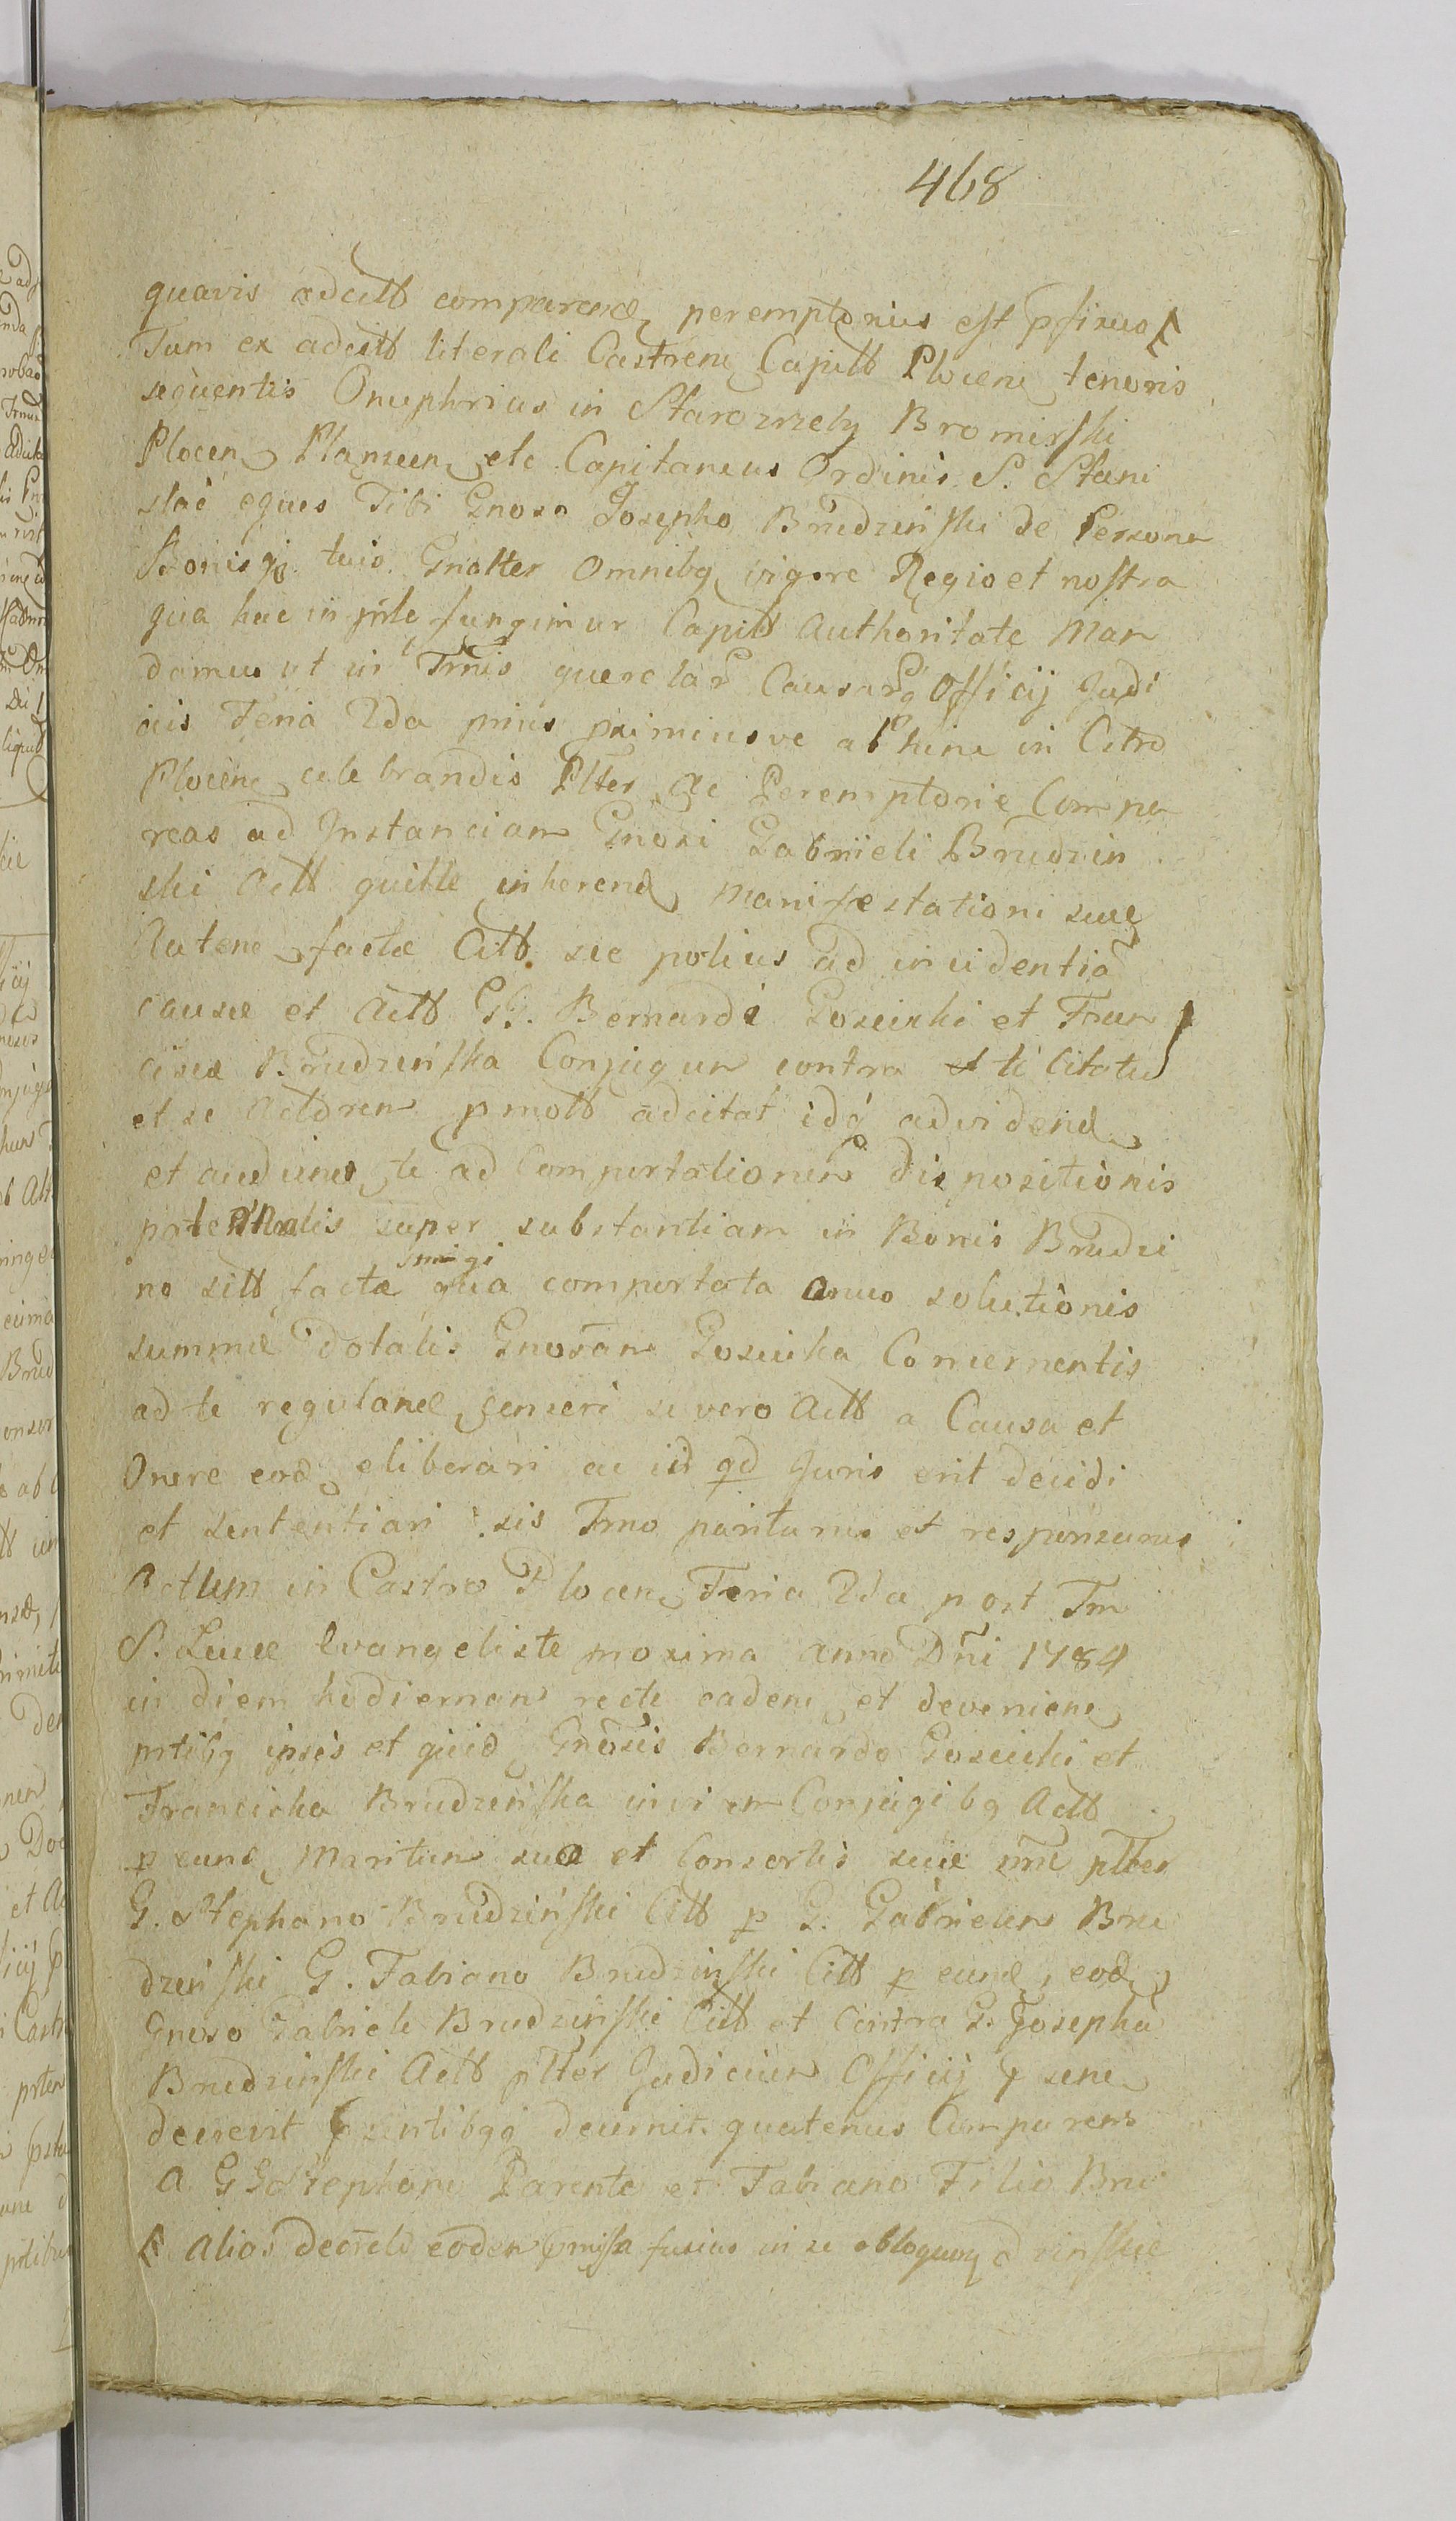 468
quavis adcitt comparend peremptorius est pfixus
Tum ex adcitt literali Castren Capitt Plocen tenoris
sequentis Onuphrius in Starozrzeby Bromirski
Plocen etc Capitaneus Ordinis S. Stani
slai eques Tibi Gnoso Josepho Brudzinski de Persona
Bonisq tuis Gnalter Omnibq vigore Regio et nostra
qua hac in prte fungimur Capitt Authoritate Man
damus ut in Trnis querelar Causarq Officij Judi
cis Feria 2da prius primiusve abhinc in Cstro
Plocen celebrandis Plter ac Peremptorie Compa
reas ad Instanciam Gnosi Gabrieli Brudzin
ski Actt inherend Manifestationi suae
factae Citt sic potius ad incidentia
causae et Actt GG. Bernardi Goscicki et Fran
cisca Brudzinska Conjugum contra te Citatu
et se Actorem pmott adcitat idq advidend
et audiend te ad Comportationem dispositionis
paternalis super substantiam in Bonis Brudzi
no sitt factae qua comportata onus solutionis
summae dotalis Gnosam Goscicka Concernentis
ad te reguland censeri se vero Actt a Causa et
Onere eod eliberari ac id qd Juris erit decidi
et sententiari sis Trno pariturus et responsurus
Actum in Castro Plocen Feria 2da post Fm
S. Lucae Evangelistae proxima anno Dni 1784
in diem hodiernam recte caden et devenien
prtibq ipsis et quid Gnosis Bernardo Goscicki et
Franciska Brudzinska invicem Conjugibq Actt
p eund Maritum suae et Consortis suae nne plter
G. Stephano Brudzinski Citt p G. Gabrielem Bru
dzinski G. Fabiano Brudzinski Citt p eund, eod
Gnoso Gabriele Brudzinski Citt et Contra G. Josephu
Brudzinski Actt plter Judicium Officij sen
decrevit decernit quatenus Comparens
a GG Stephano Parente et Fabiano Filio Bru
alio Decreto eodem pmissa fusius in se obloquen dzinskie